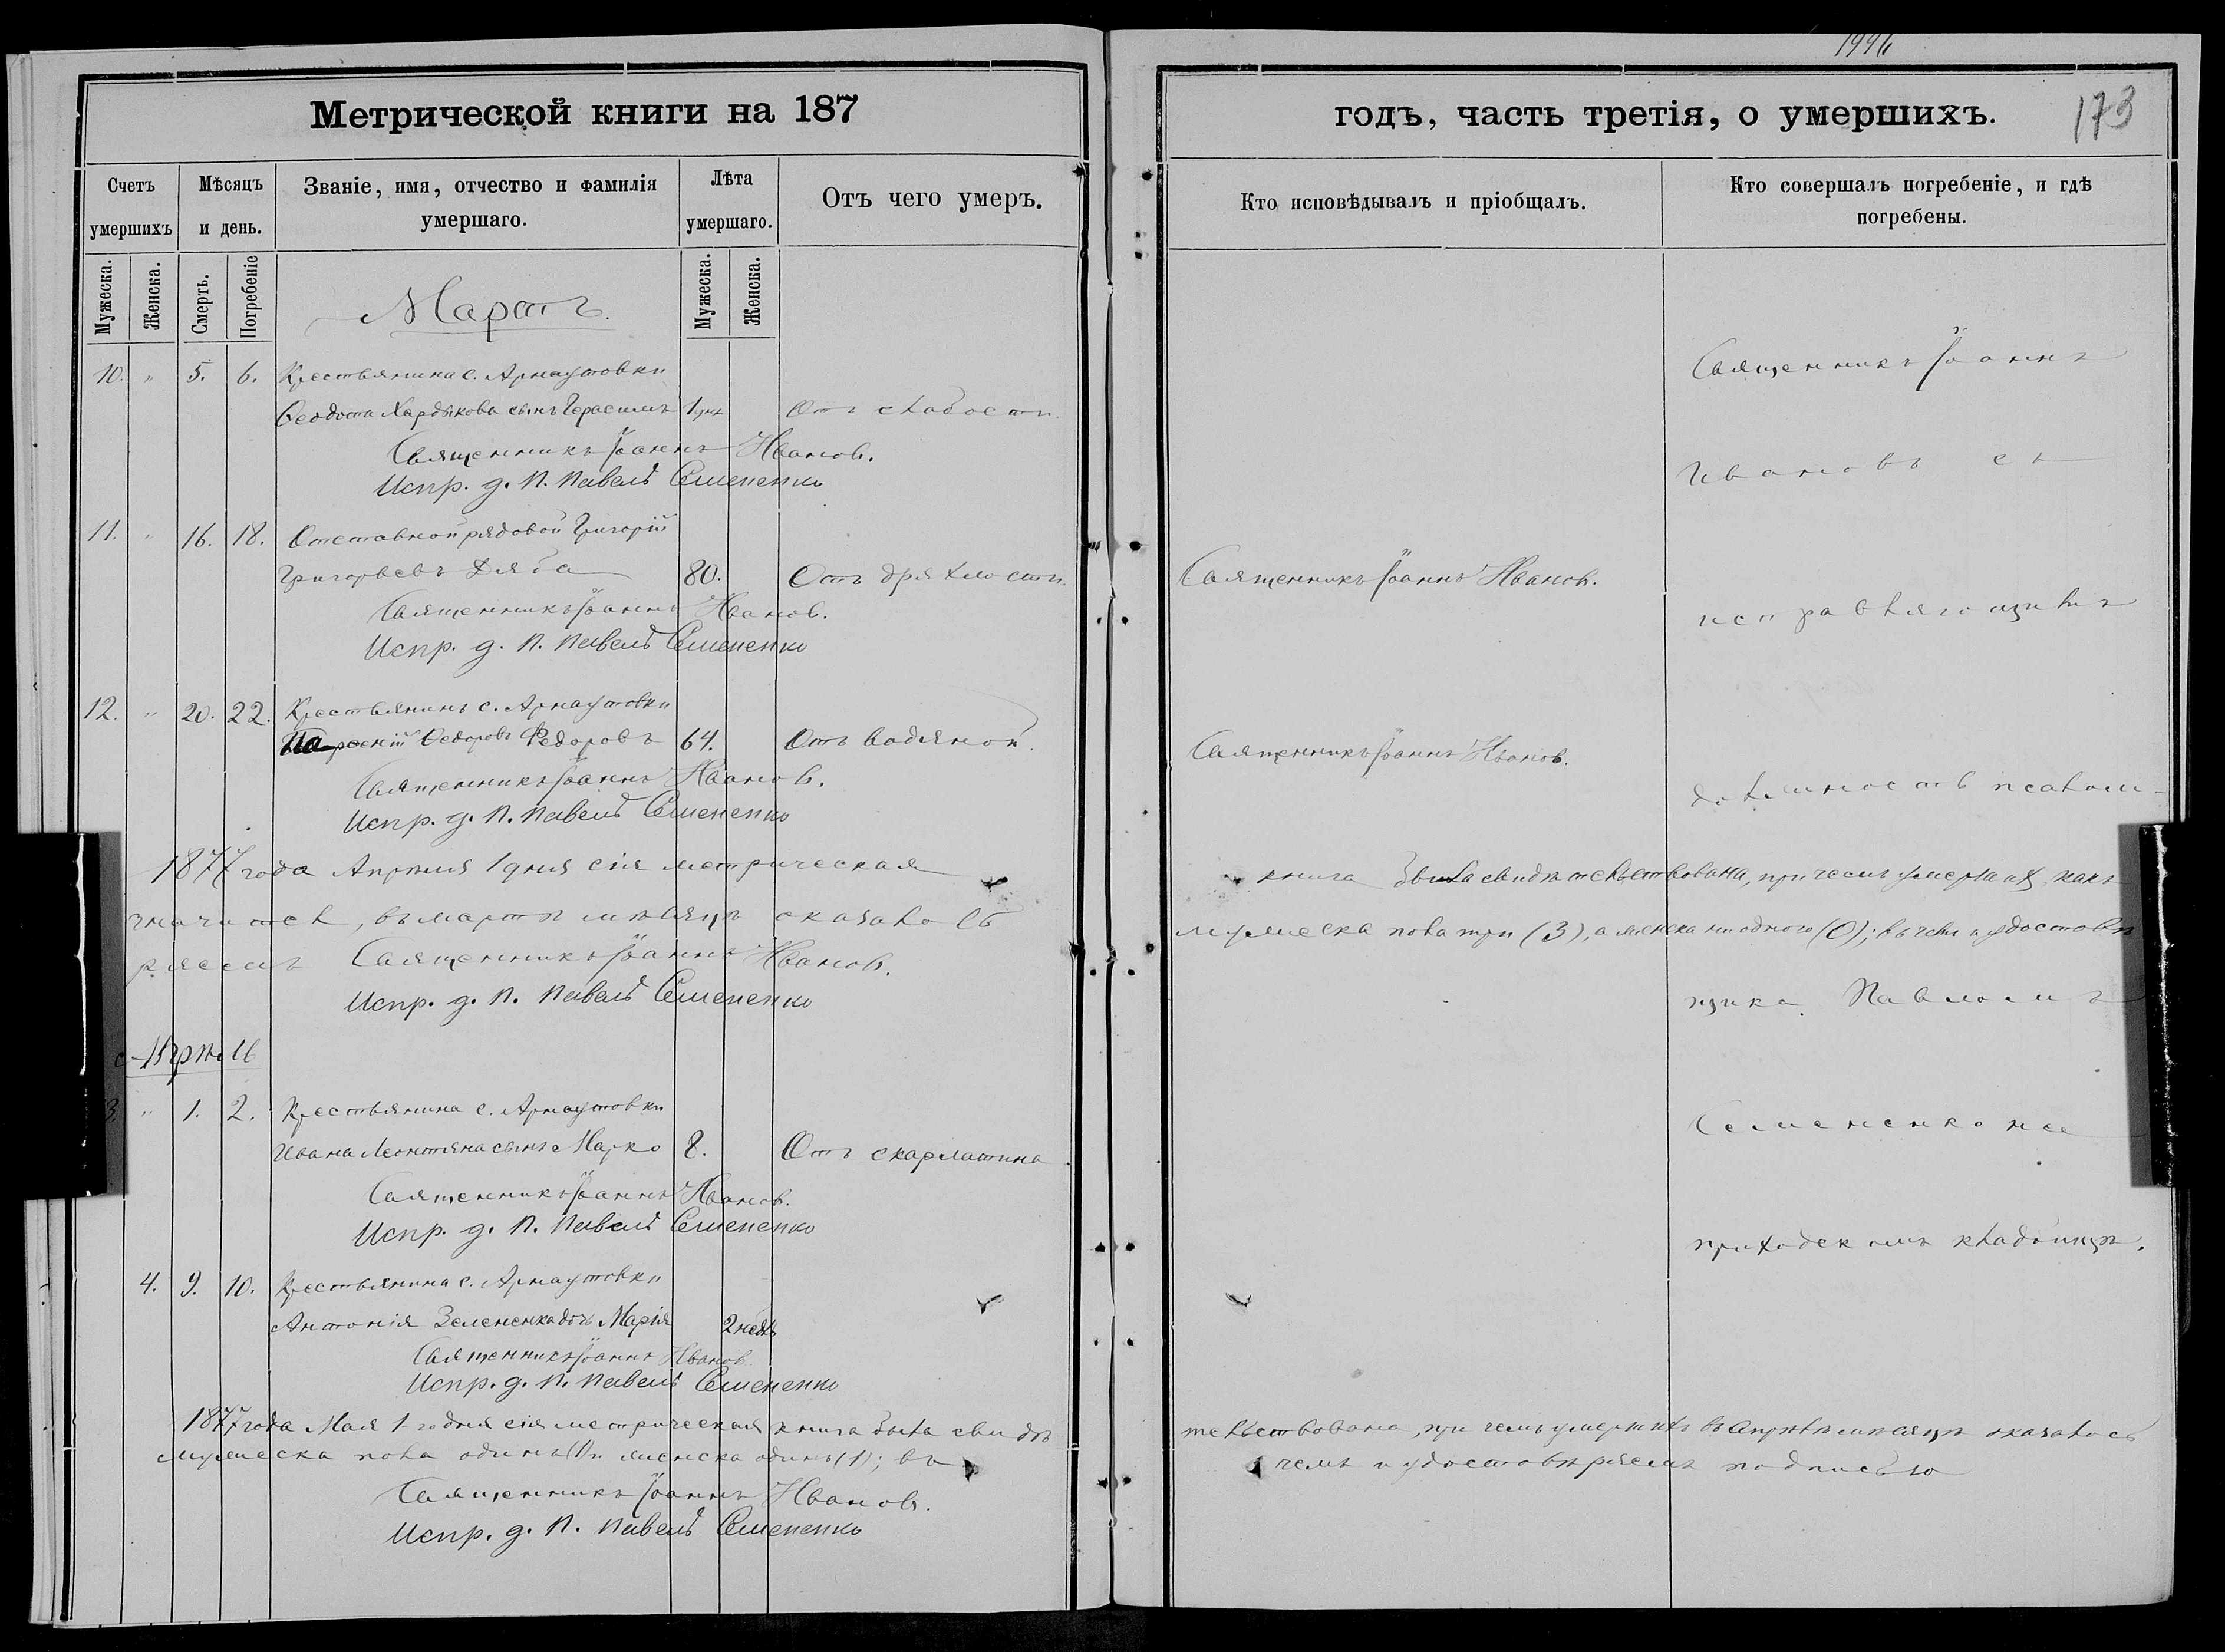 1996
Метрической книги на 187
годъ, часть третія, о умершихъ.
173
Счетъ умершихъ
Мѣсяцъ и день.
Званіе, имя, отчество и фамилія умершаго.
Лѣта умершаго.
Отъ чего умеръ.
Кто исповѣдывалъ и пріобщалъ.
Кто совершалъ погребеніе, и гдѣ погребены.
Мужеска.
Женска.
Смерть.
Погребеніе
Мужеска.
Женска.
Мартъ.
10. " 5. 6. Крестьянина с. Арнаутовки
Ѳеодота сынъ Герасимъ 1 Отъ слабости.
Священникъ Іоаннъ Иванов.
Испр. д. П. Павелъ Семененко
11. " 16. 18. Отставной рядовой Григорій
Григорьевъ Дяба 80. Отъ дряхлости. Священникъ Іоаннъ Иванов.
Священникъ Іоаннъ Иванов.
Испр. д. П. Павелъ Семененко
12. " 20. 22. Крестьянинъ с. Арнаутовки
Ѳедоровъ Федоровъ 64. Отъ водяной. Священникъ Іоаннъ Иванов.
Священникъ Іоаннъ Иванов.
Испр. д. П. Павелъ Семененко
1877 года Апрѣля 1 дня сія метрическая книга была свидѣтельствована, при чемъ умершихъ, какъ
значится, въ мартѣ мѣсяцѣ оказалось мужеска пола три (3), а женска ни одного (0); въ чемъ и удостовѣ
ряемъ Священникъ Іоаннъ Иванов.
Испр. д. П. Павелъ Семененко
Апрѣль
3. " 1. 2. Крестьянина с. Арнаутовки
Ивана Леонтяна сынъ Марко 8. Отъ скарлатина.
Священникъ Іоаннъ Иванов.
Испр. д. П. Павелъ Семененко
4. 9. 10. Крестьянина с. Арнаутовки
Антонія Зелененка дочь Марія 2 недѣ
Священникъ Іоаннъ Иванов.
Испр. д. П. Павелъ Семененко
1877 года Мая 1-го дня сія метрическая книга была свидѣ тельствована, при чемъ умершихъ въ Апрѣлѣ мѣсяцѣ оказалось
мужеска пола одинъ (1) и женска одинъ (1); въ чемъ и удостовѣряемъ подписью
Священникъ Іоаннъ Иванов.
Испр. д. П. Павелъ Семененко
Священникъ Іоаннъ
Ивановъ съ
исправляющимъ
должность псалом-
щика Павломъ
Семененко на
приходскомъ кладбищѣ.